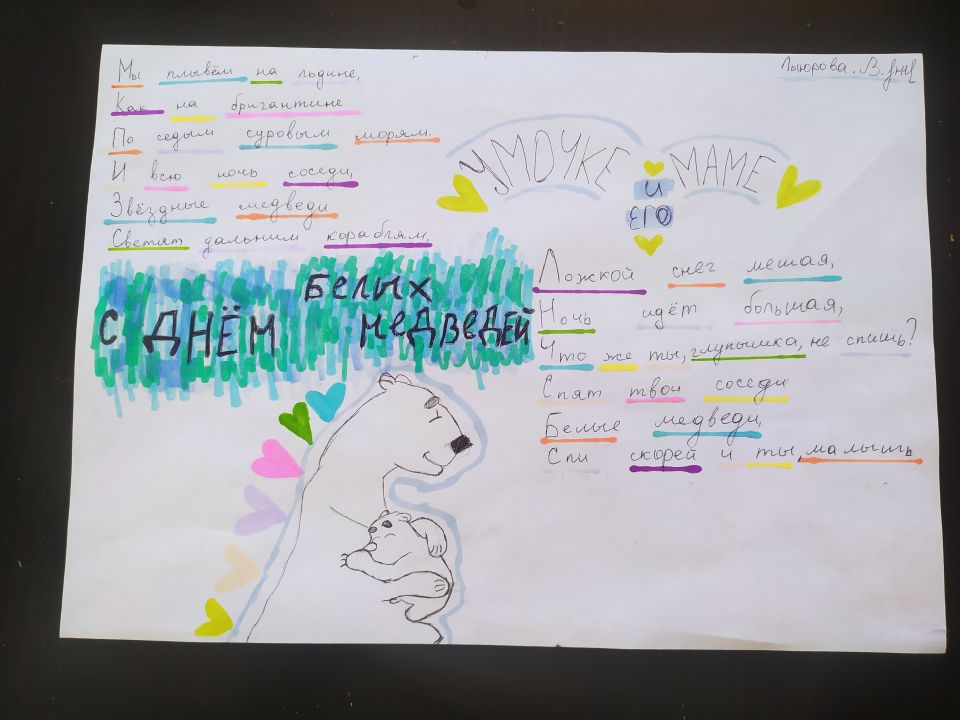 Мы плывём на льдине,
Как на бригантине
По седым суровым морям.
И всю ночь соседи,
Звёздные медведи
Светят дальним кораблям.
УМОЧКЕ И ЕГО МАМЕ
С ДНЁМ БЕЛЫХ МЕДВЕДЕЙ
Ложкой снег мешая,
Ночь идёт большая,
Что же ты, глупышка, не спишь?
Спят твои соседи
Белые медведи,
Спи скорей и ты, малыш.